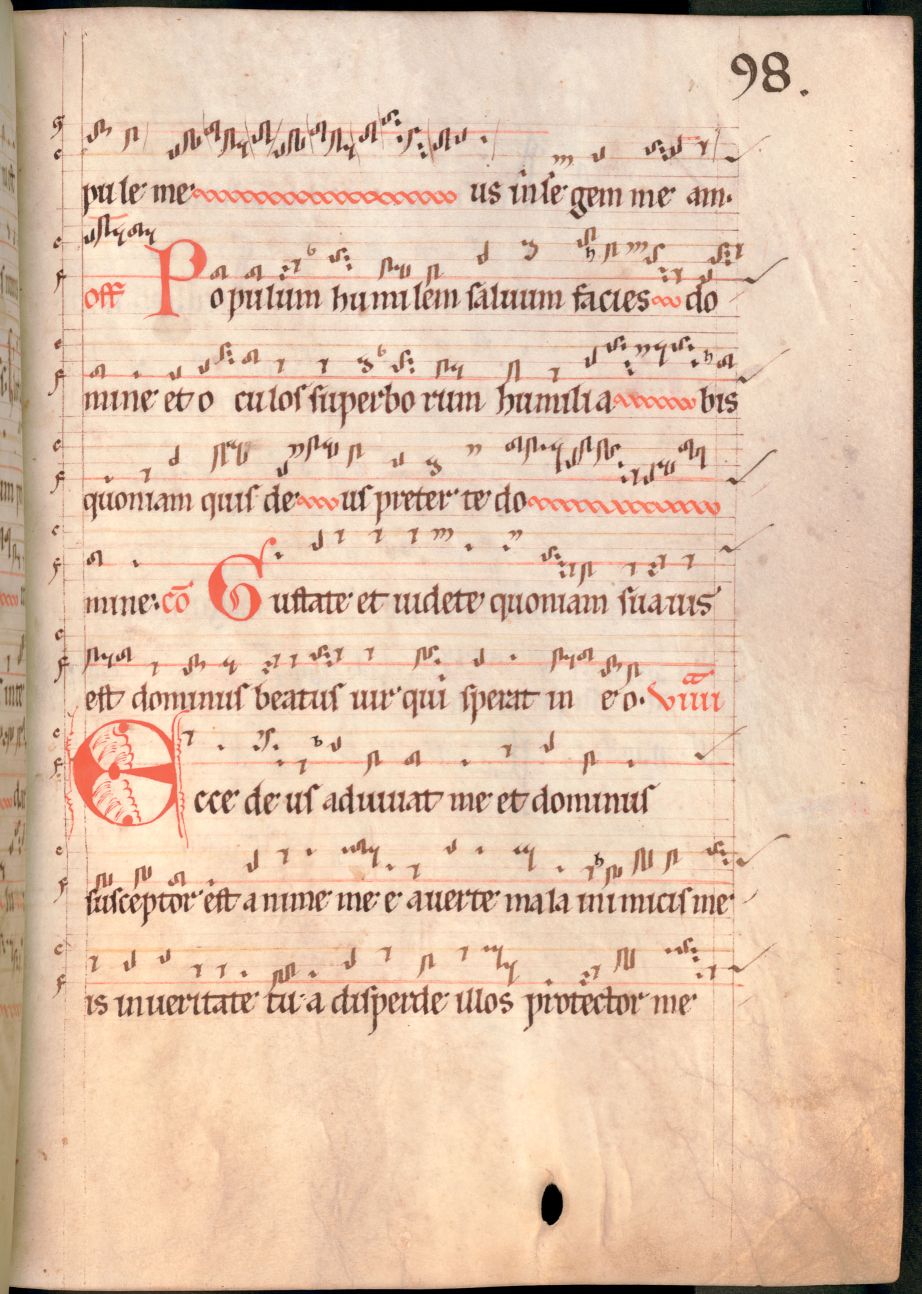 98.
pule me us in le gem me am.
off Populum humilem saluum facies do
mine et o culos superbo rum humilia bis
quoniam quis de us preter te do
mine. cō Gustate et uidete quoniam suauis
est dominus beatus uir qui sperat in eo. viiiia
Ecce de us adiuuat me et dominus
susceptor est anime me e auerte mala inimicis me
is inueritate tu a disperde illos protector me